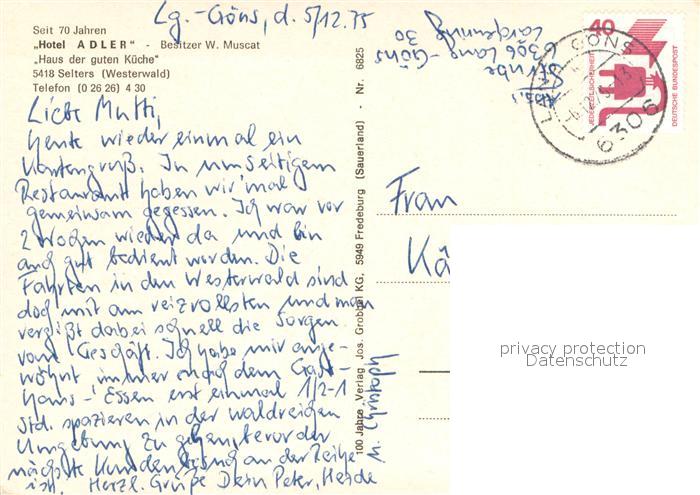 Lg.-Göns, d. 5/12.75
Seit 70 Jahren
„Hotel ADLER" - Besitzer W. Muscat
„Haus der guten Küche"
5418 Selters (Westerwald)
Telefon (0 26 26) 4 30
Liebe Mutti,
heute wieder einmal ein
Kartengruß. In umseitigem
Restaurant haben wir 'mal
gemeinsam gegessen. Ich war vor
2 Wochen wieder da und bin
auch gut bedient worden. Die
Fahrten in den Westerwald sind
doch mit am reizvollsten und man
vergißt dabei schnell die Sorgen
vom Geschäft. Ich habe mir ange-
wöhnt immer nach dem Gast-
haus-Essen erst einmal 1/2-1
Std. spazieren in der waldreichen
Umgebung zu gehen, bevor der
nächste Kundenbesuch an der Reihe
ist. Herzl. Grüße Dein Peter, Heide
u. Christoph
100 Jahre Verlag Jos. Grobbel KG, 5949 Fredeburg (Sauerland) - Nr. 6825
Abs.: Strube
6306 Lang-Göns
30
40
JEDERZEIT SICHERHEIT
DEUTSCHE BUNDESPOST
LANG-GÖNS
6306
Frau
Kä
privacy protection
Datenschutz